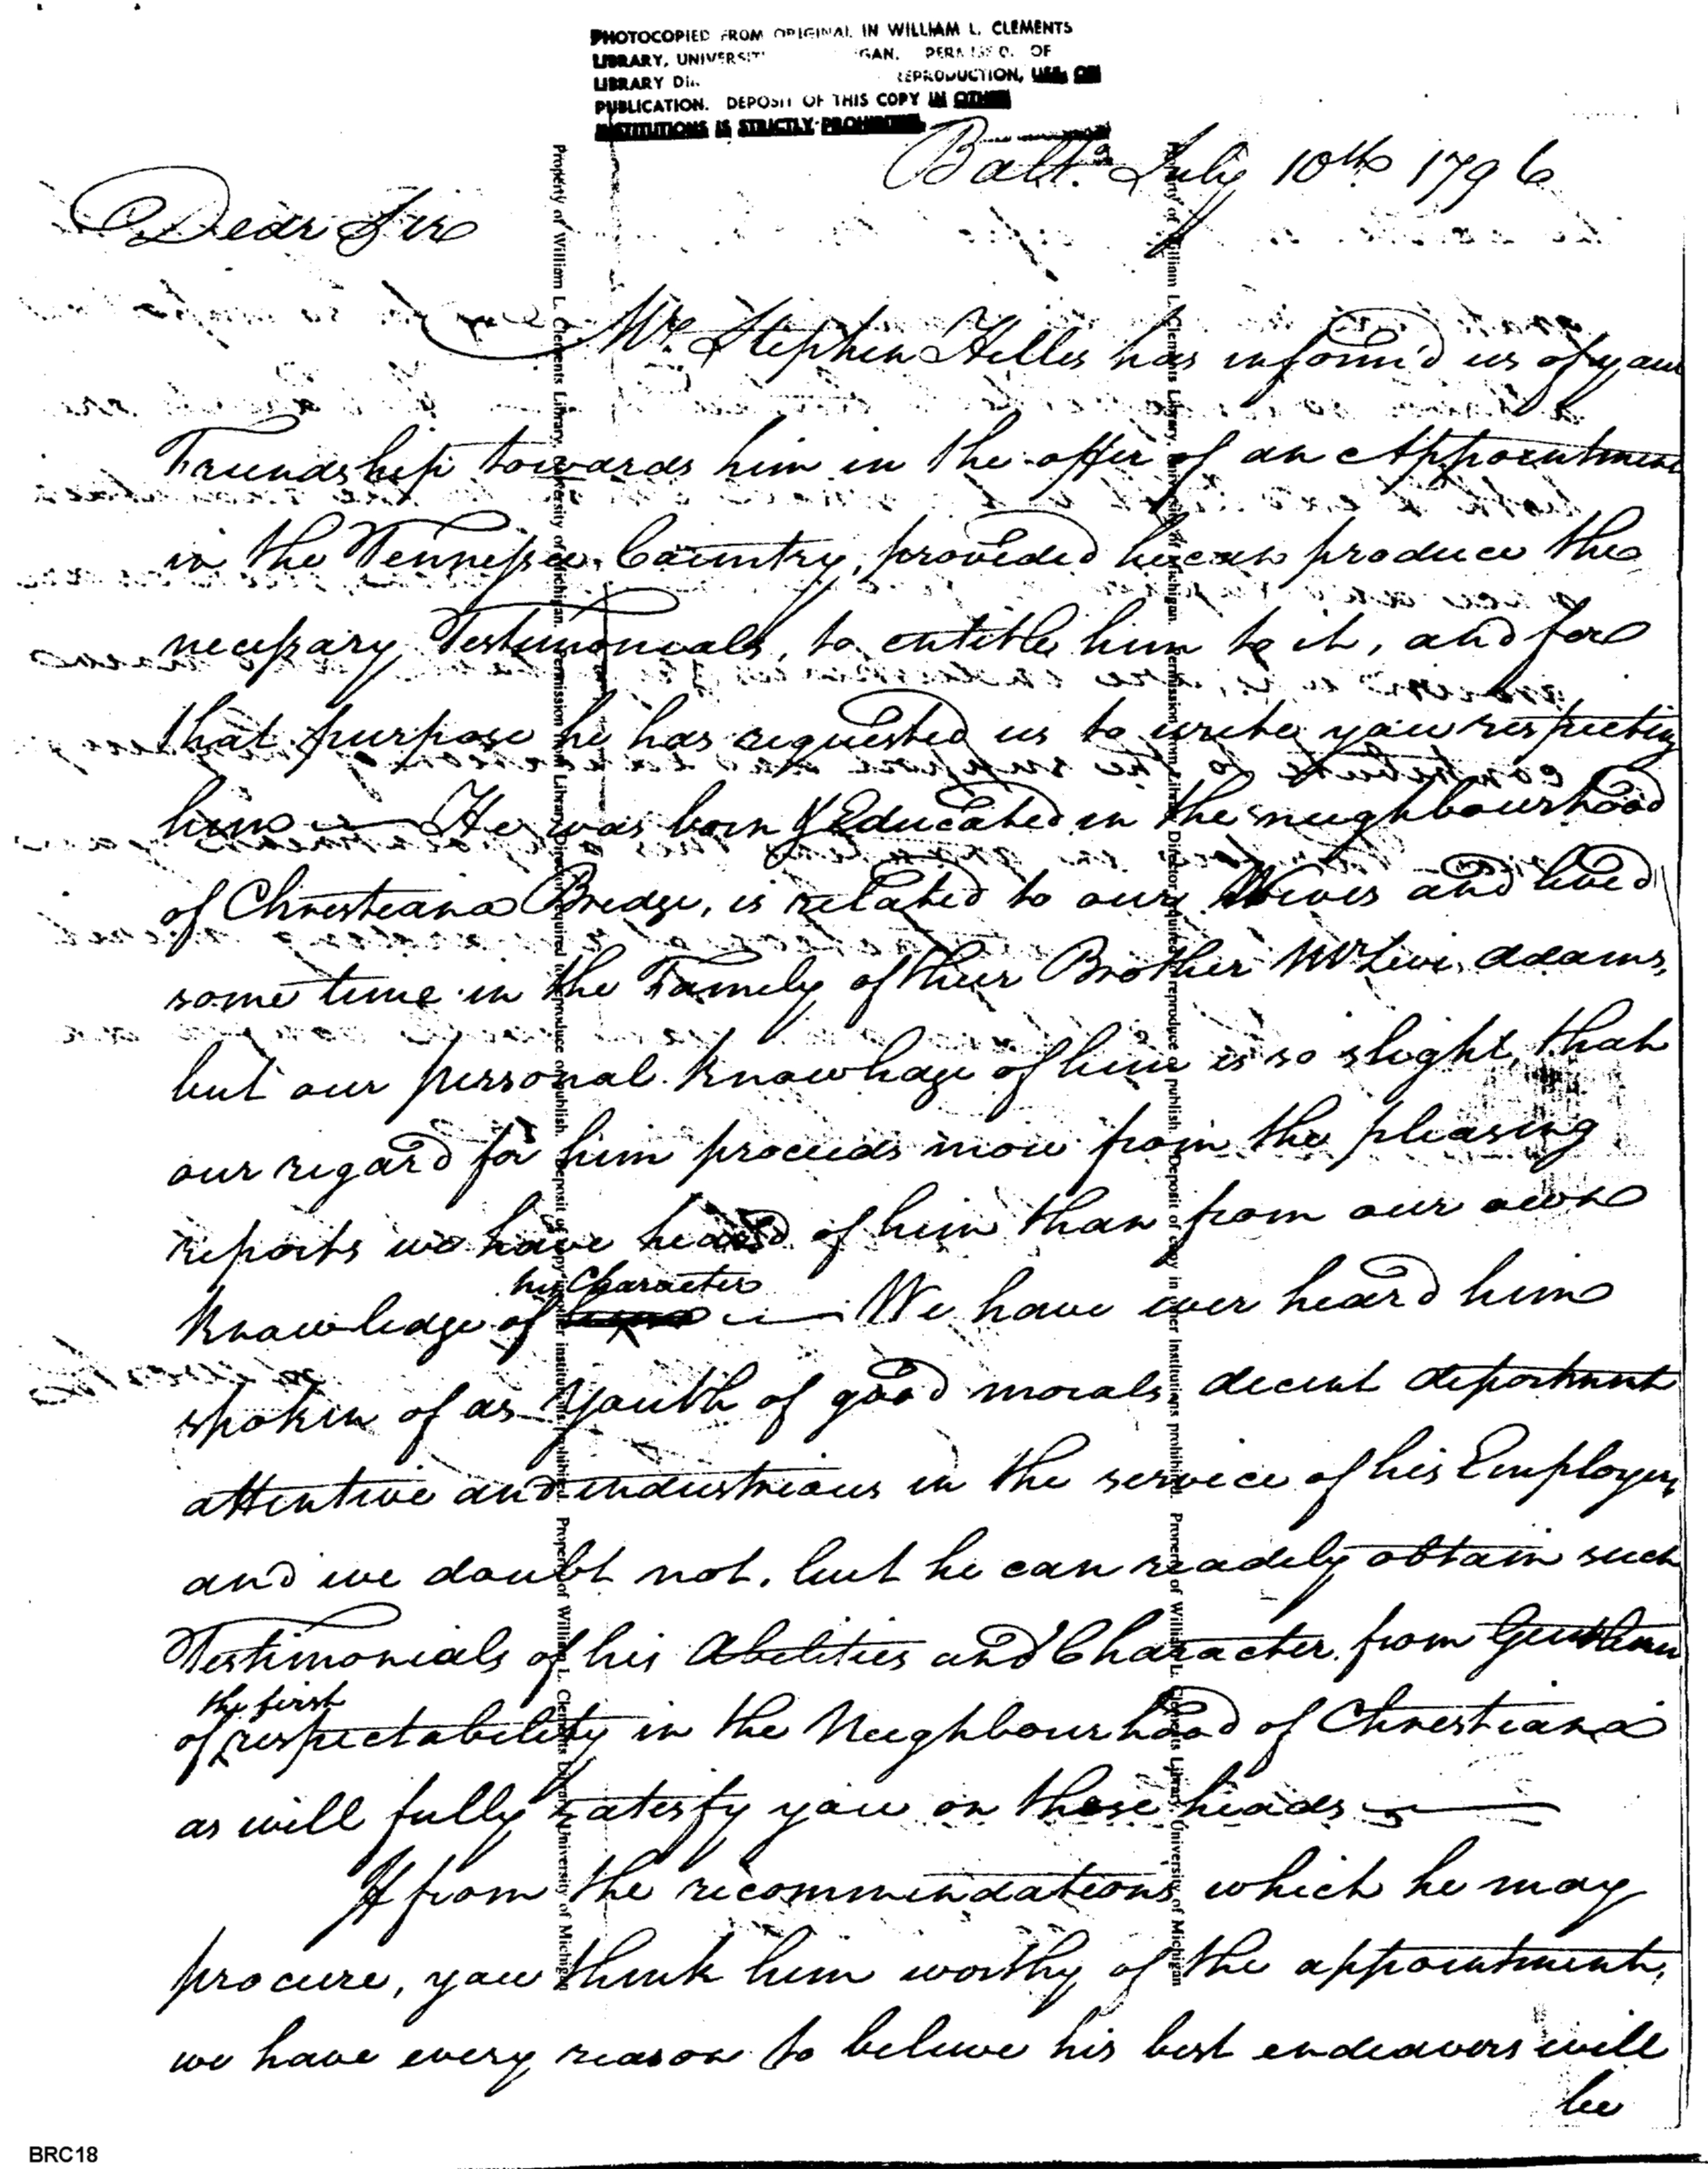 PHOTOCOPIED FROM ORIGINAL IN WILLIAM L. CLEMENTS
LIBRARY, UNIVERSIT GAN. PERMISSION OF
LIBRARY DI REPRODUCTION, USE OR
PUBLICATION. DEPOSIT OF THIS COPY IN OTHER
INSTITUTIONS IS STRICTLY PROHIBITED.
Balt.º July 10th 1796
Dear Sir
Mr. Stephen Hilles has inform'd us of your
Friendship towards him in the offer of an Appointment
in the Tennessee Country, provided he can produce the
necessary Testimonials, to entitle him to it, and for
that purpose he has requested us to write you respecting
him — He was born & Educated in the neighbourhood
of Christiana Bridge, is related to our Wives and lived
some time in the Family of their Brother Mr Levi Adams,
but our personal knowlage of him is so slight, that
our regard for him proceeds more from the pleasing
reports we have heard of him than from our own
his Character
knowledge of him — We have ever heard him
spoken of as Youth of good morals decent deportment
attentive and industrious in the service of his Employers,
and we doubt not, but he can readily obtain such
Testimonials of his Abilities and Character from Gentlemen
the first
of respectability in the Neighbourhood of Christiana
as will fully satisfy you on those heads —
If from the recommendations which he may
procure, you think him worthy of the appointment,
we have every reason to believe his best endeavors will
be
Property of William L. Clements Library, University of Michigan. Permission from Library Director required to reproduce or publish. Deposit of copy in other institutions prohibited. Property of William L. Clements Library, University of Michigan
Property of William L. Clements Library, University of Michigan. Permission from Library Director required to reproduce or publish. Deposit of copy in other institutions prohibited. Property of William L. Clements Library, University of Michigan
BRC18